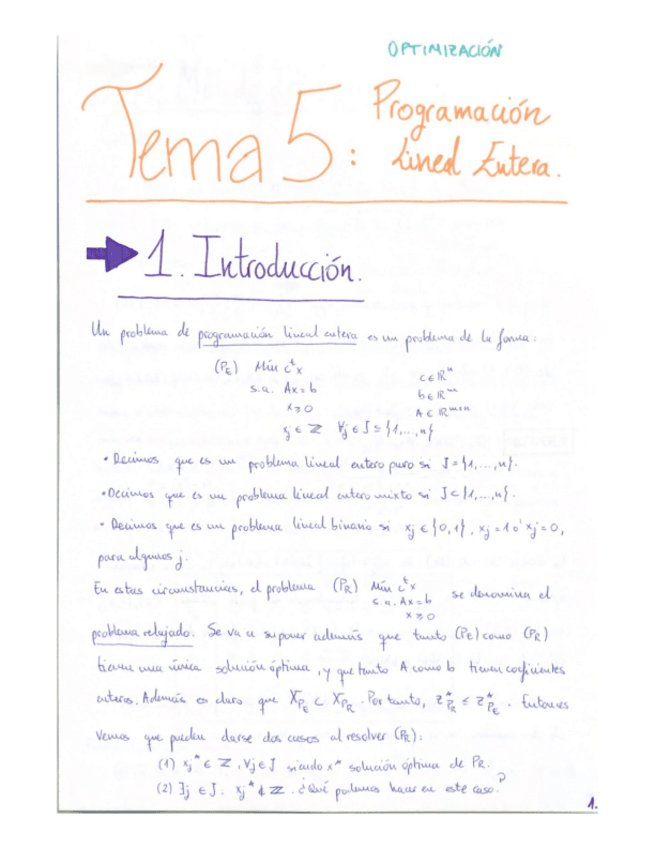 OPTIMIZACIÓN
Tema 5: Programación
Lineal Entera.
1. Introducción.
Un problema de programación lineal entera es un problema de la forma:
(PE) Mín cᵗx c ∈ ℝⁿ
s.a. Ax = b b ∈ ℝᵐ
x ≥ 0 A ∈ ℝᵐˣⁿ
xj ∈ ℤ ∀j ∈ J ⊆ {1,...,n}
• Decimos que es un problema lineal entero puro si J = {1,...,n}.
• Decimos que es un problema lineal entero mixto si J ⊂ {1,...,n}.
• Decimos que es un problema lineal binario si xj ∈ {0,1}, xj = 1 o xj = 0,
para algunos j.
En estas circunstancias, el problema (PR) Mín cᵗx se denomina el
s.a. Ax = b
x ≥ 0
problema relajado. Se va a suponer además que tanto (PE) como (PR)
tienen una única solución óptima, y que tanto A como b tienen coeficientes
enteros. Además es claro que XPE ⊂ XPR. Por tanto, z*PR ≤ z*PE. Entonces
vemos que pueden darse dos casos al resolver (PR):
(1) xj* ∈ ℤ, ∀j ∈ J siendo x* solución óptima de PR.
(2) ∃j ∈ J. xj* ∉ ℤ. ¿Qué podemos hacer en este caso?
1.